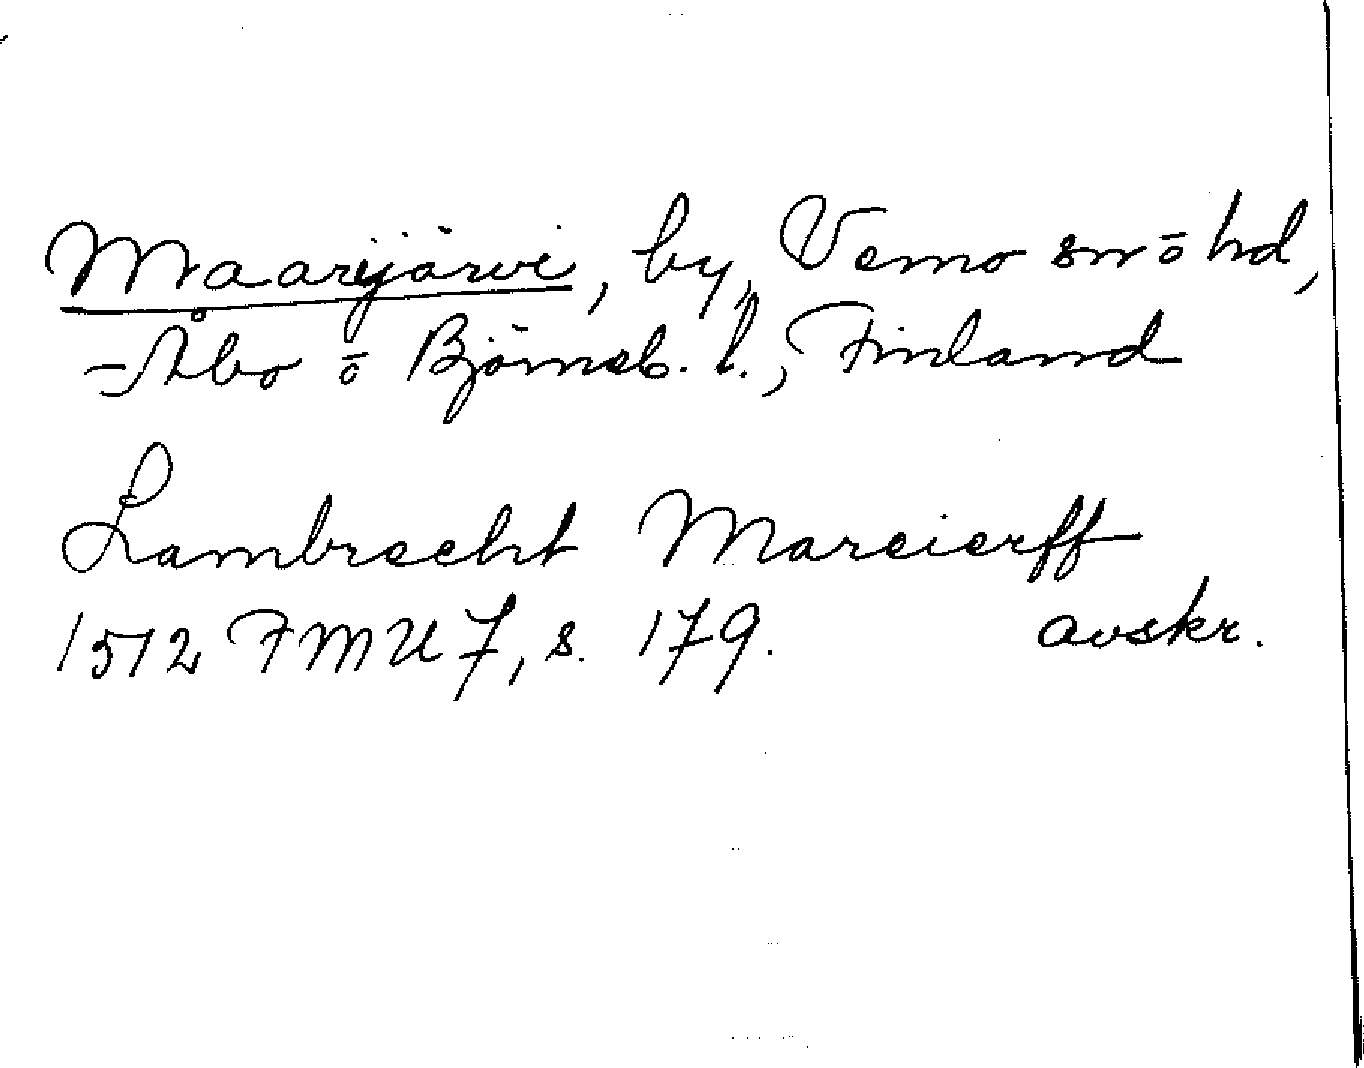 Maarjärvi, by, Vemo sn ō hd,
Åbo ō Björneb. l., Finland
Lambrecht Mareierff
1512 FMU 7, s. 179. avskr.